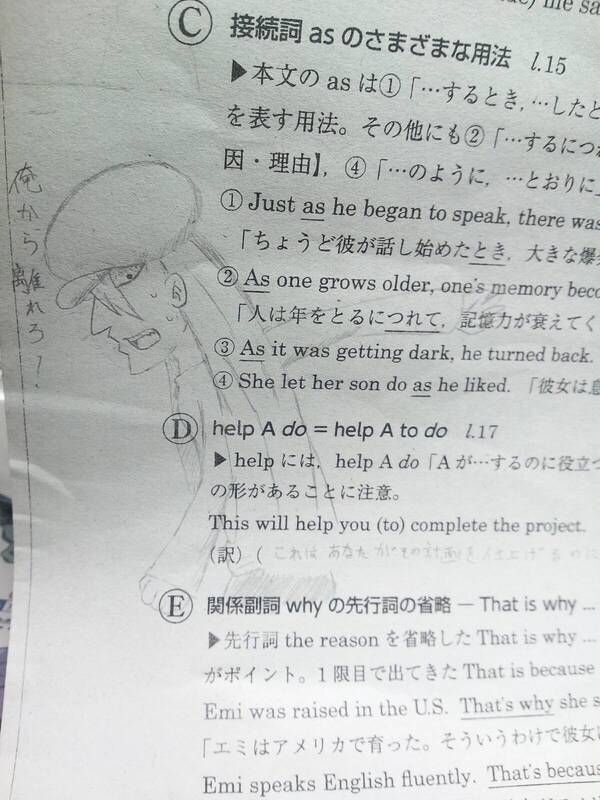 me sa
Ⓒ 接続詞 as のさまざまな用法 l.15
▶本文の as は①「…するとき, …したと
を表す用法。その他にも②「…するにつれ
因・理由】, ④「…のように, …とおりに」
① Just as he began to speak, there was
「ちょうど彼が話し始めたとき, 大きな爆
② As one grows older, one's memory beco
「人は年をとるにつれて, 記憶力が衰えてく
③ As it was getting dark, he turned back.
④ She let her son do as he liked. 「彼女は息
Ⓓ help A do = help A to do l.17
▶ help には, help A do「A が…するのに役立つ
の形があることに注意。
This will help you (to) complete the project.
(訳) ( これは あなたがその計画を仕上げるのに
Ⓔ 関係副詞 why の先行詞の省略 — That is why ...
▶先行詞 the reason を省略した That is why ...
がポイント。1限目で出てきた That is because
Emi was raised in the U.S. That's why she s
「エミはアメリカで育った。そういうわけで彼女は
Emi speaks English fluently. That's becaus
俺から離れろ!